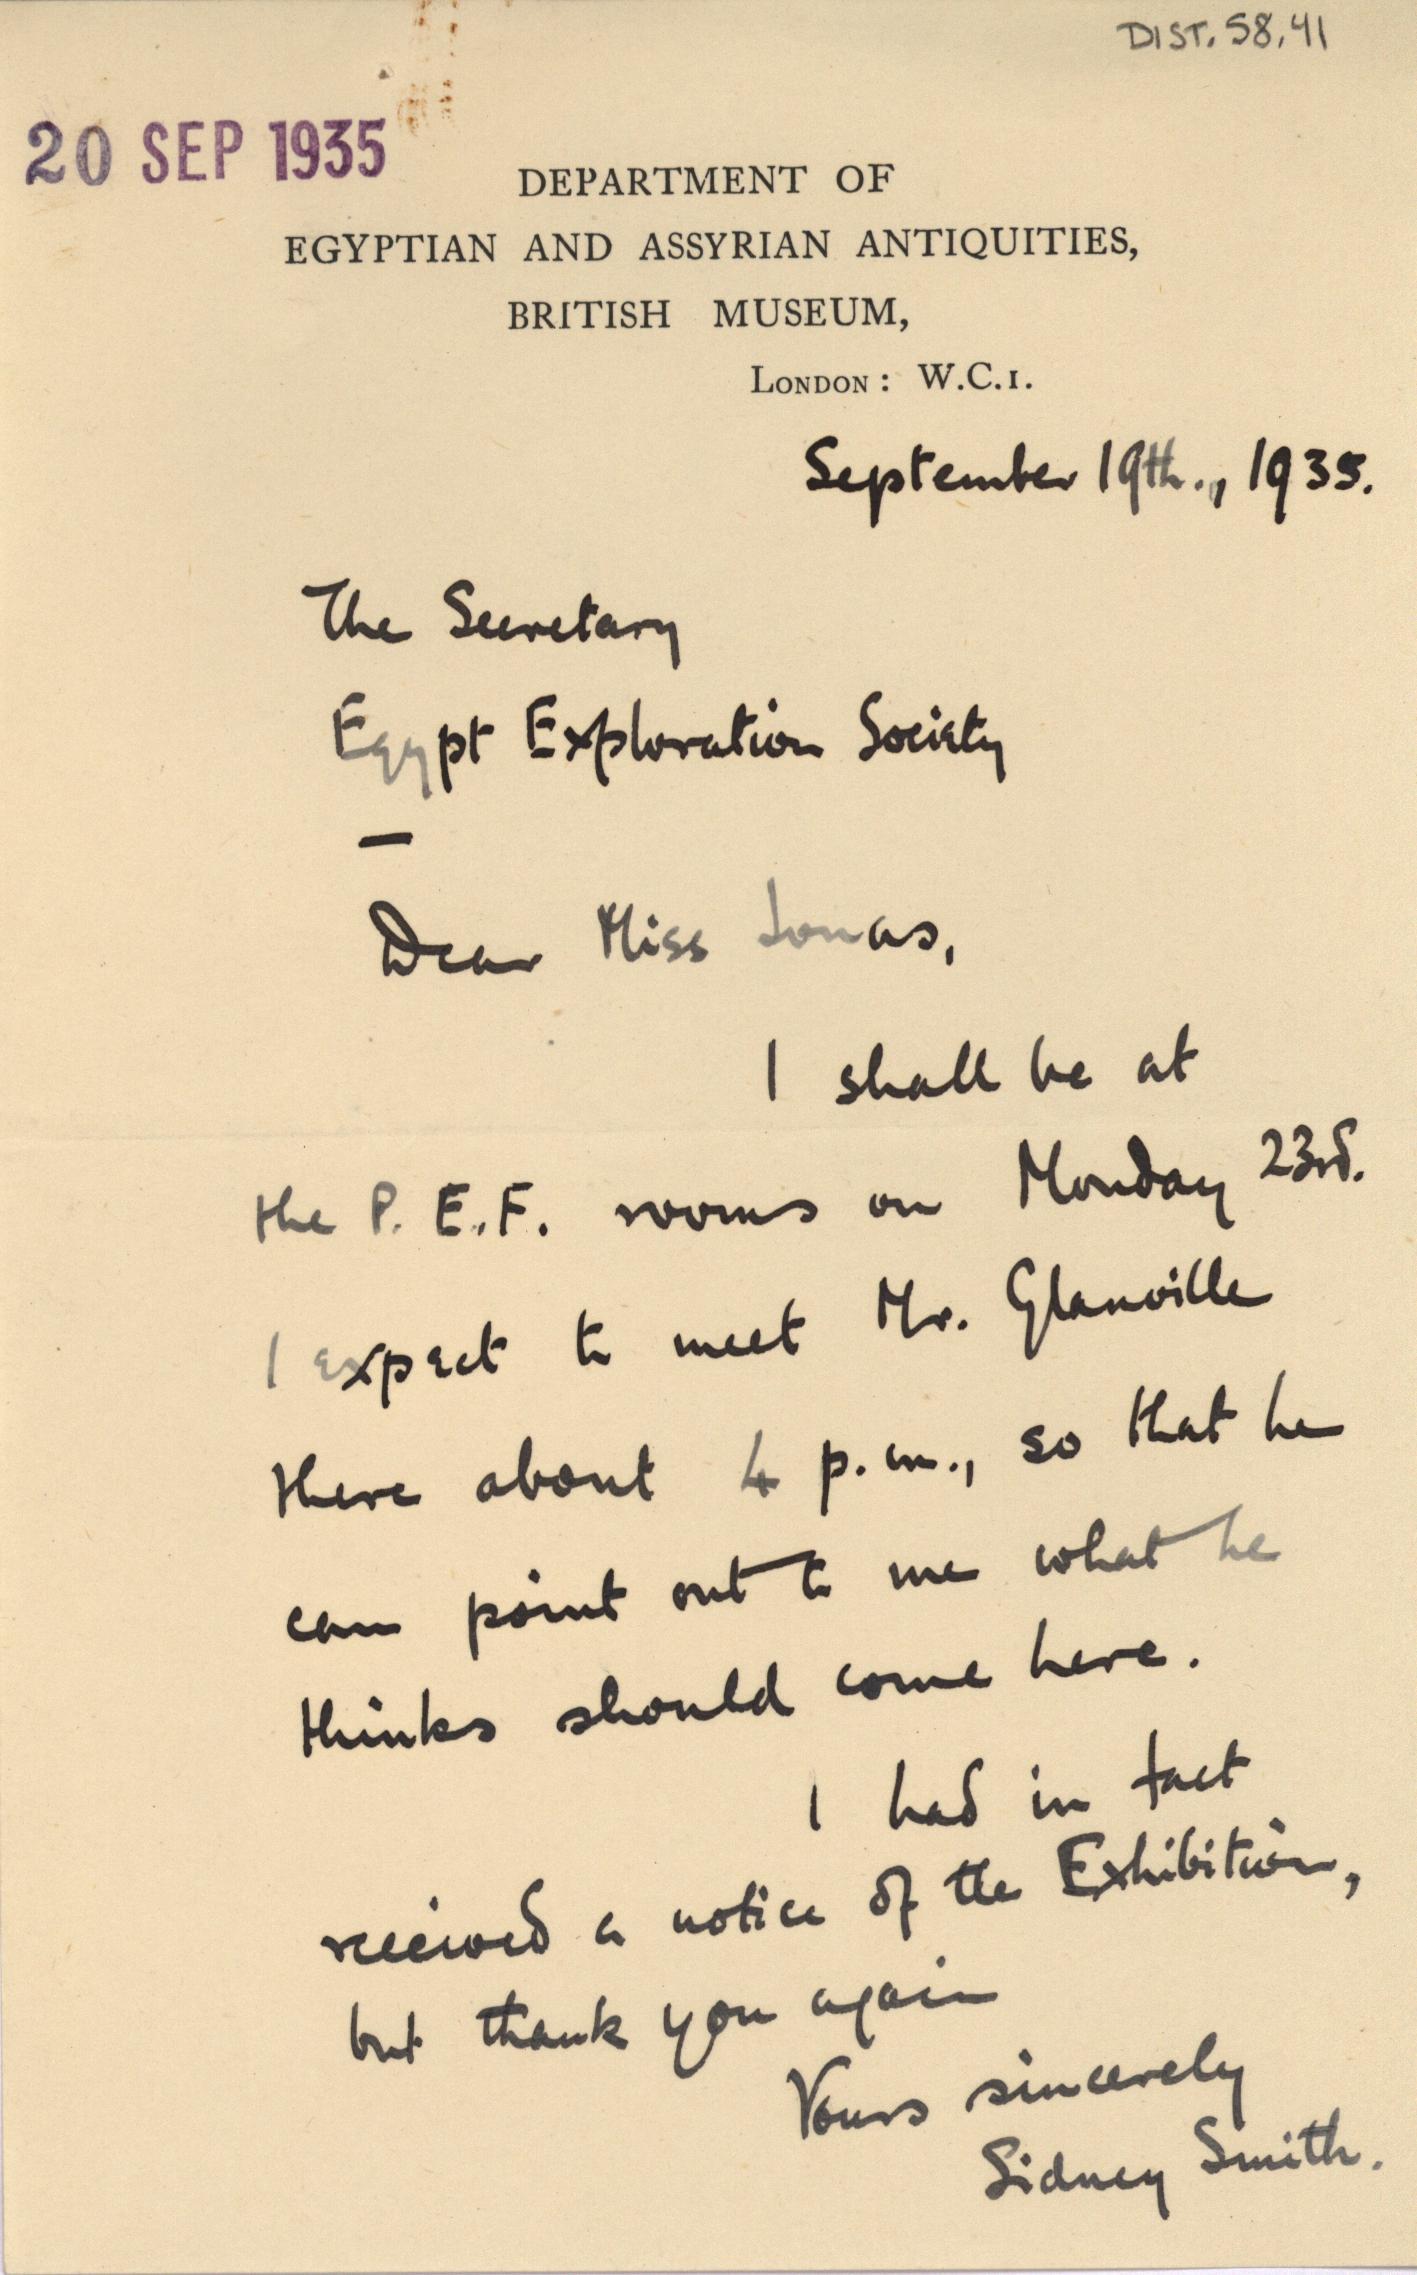 DIST. 58.41
20 SEP 1935
DEPARTMENT OF
EGYPTIAN AND ASSYRIAN ANTIQUITIES,
BRITISH MUSEUM,
LONDON: W.C.1.
September 19th., 1935.
The Secretary
Egypt Exploration Society
—
Dear Miss Jonas,
I shall be at
the P.E.F. rooms on Monday 23rd.
I expect to meet Mr. Glanville
there about 4 p.m., so that he
can point out to me what he
thinks should come here.
I had in fact
received a notice of the Exhibition,
but thank you again
Yours sincerely
Sidney Smith.